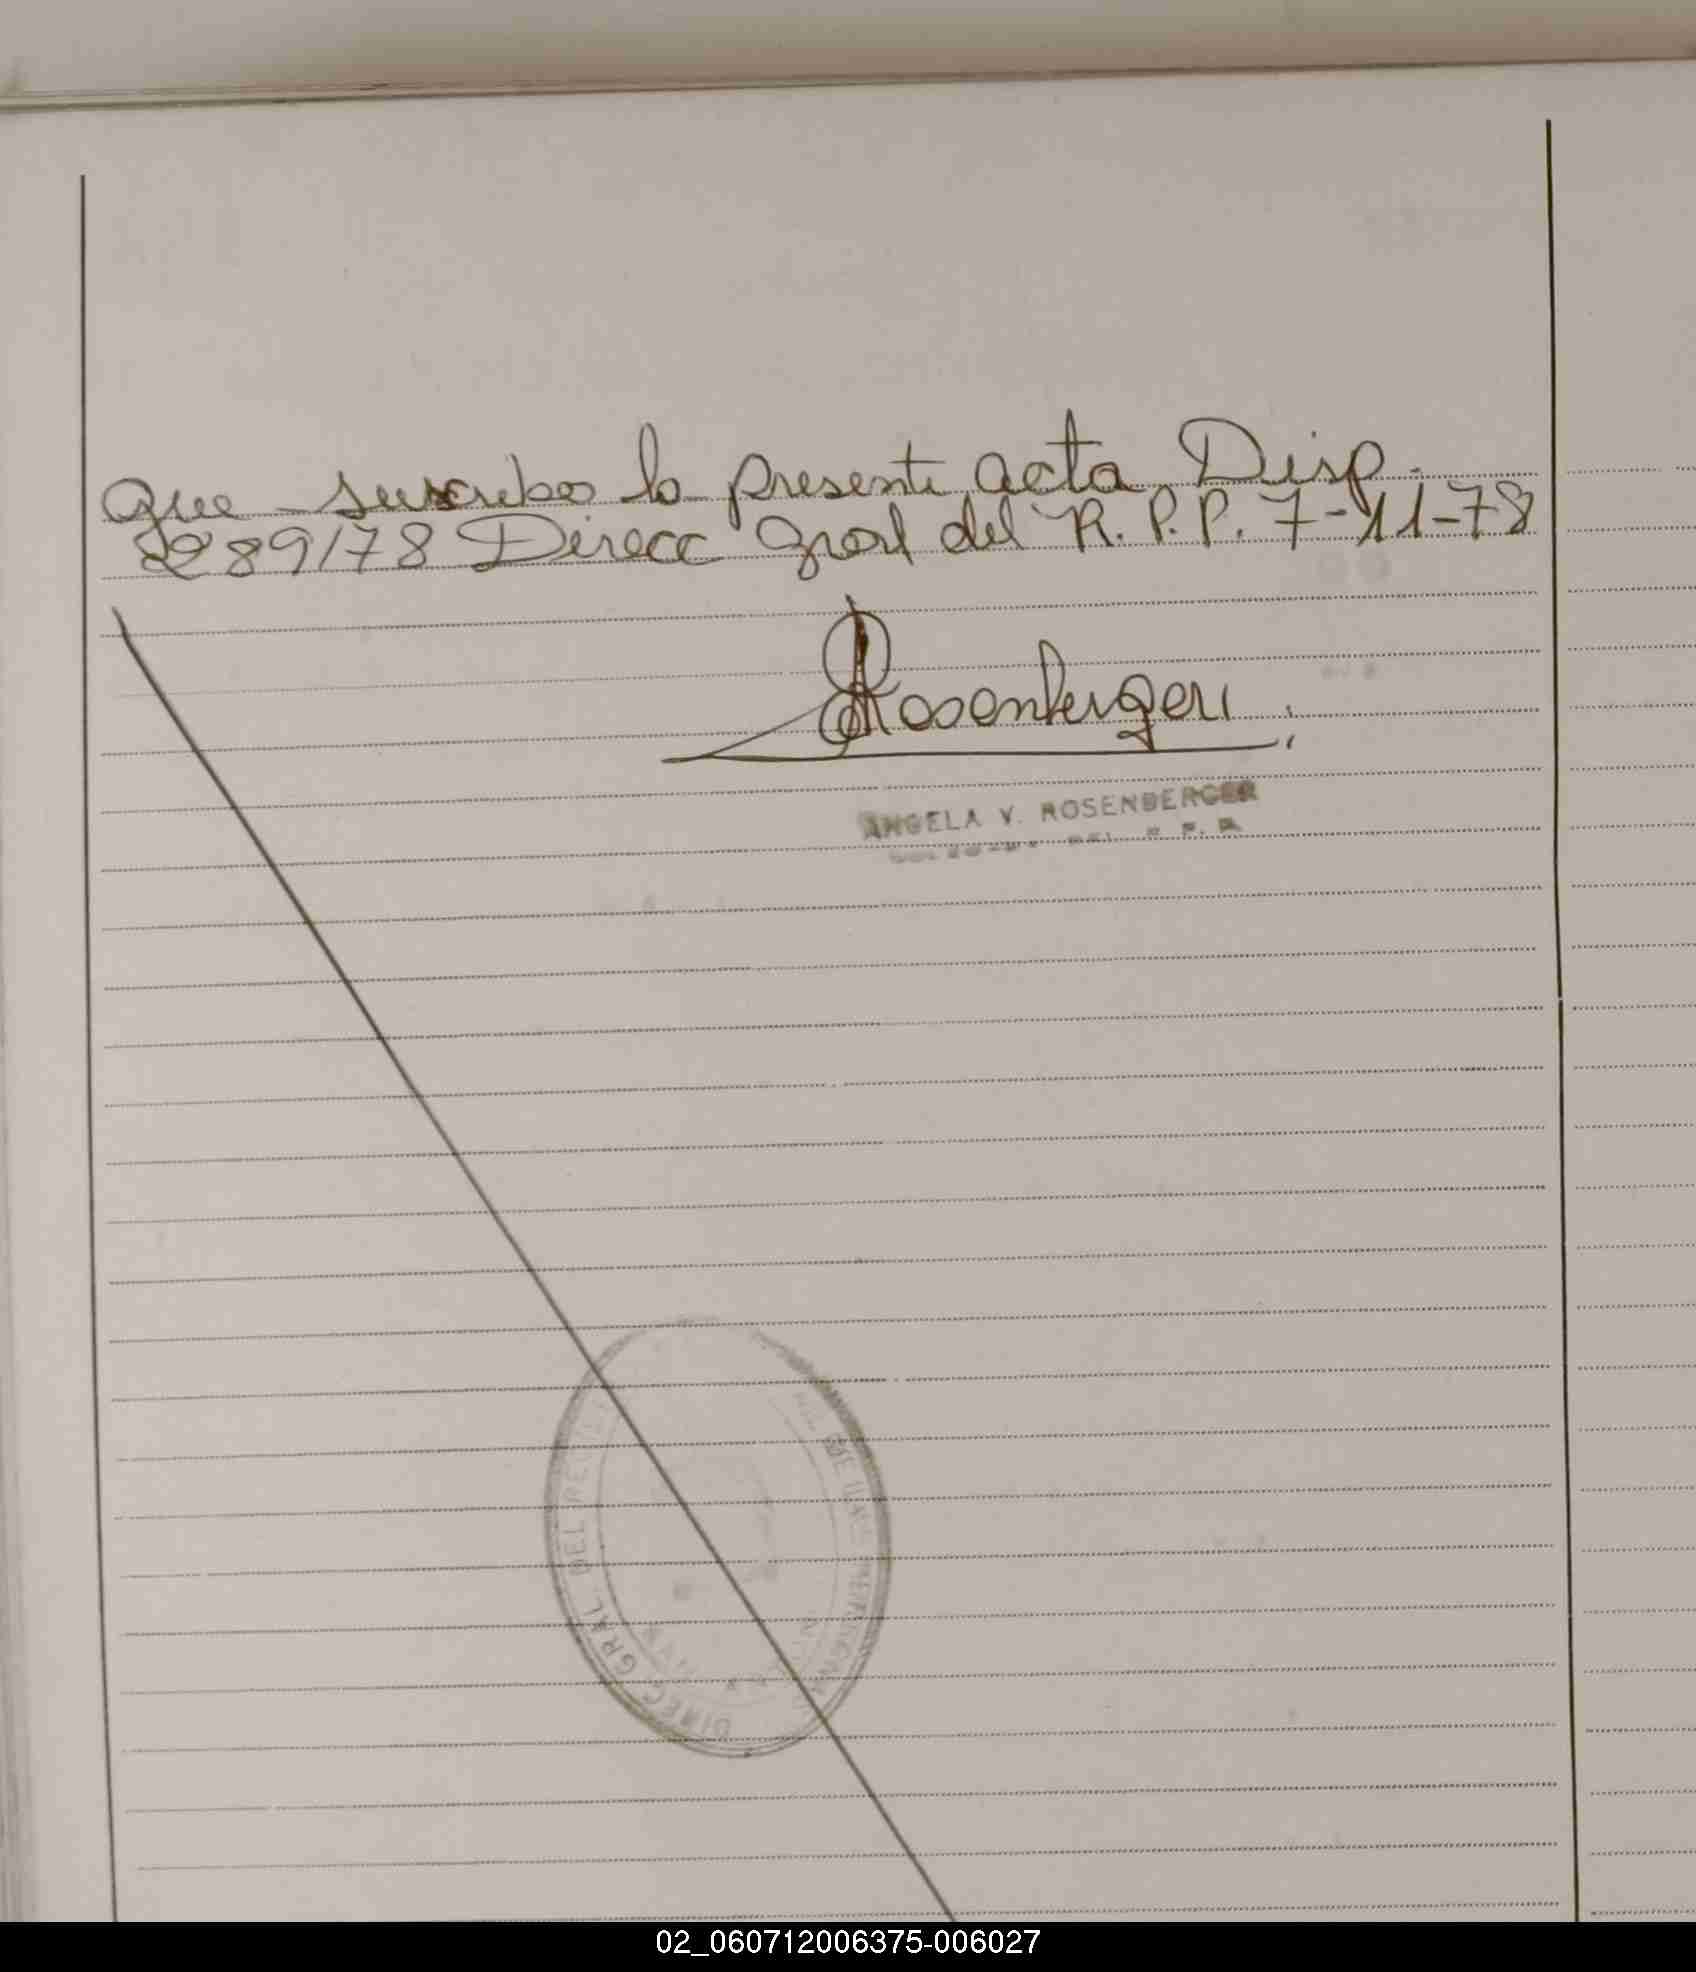 que suscribo la presente acta. Disp.
2289/78 Direcc Gral del R.P.P. 7-11-78
Rosenberger
ANGELA V. ROSENBERGER
DIREC. GRAL. DEL
02_060712006375-006027